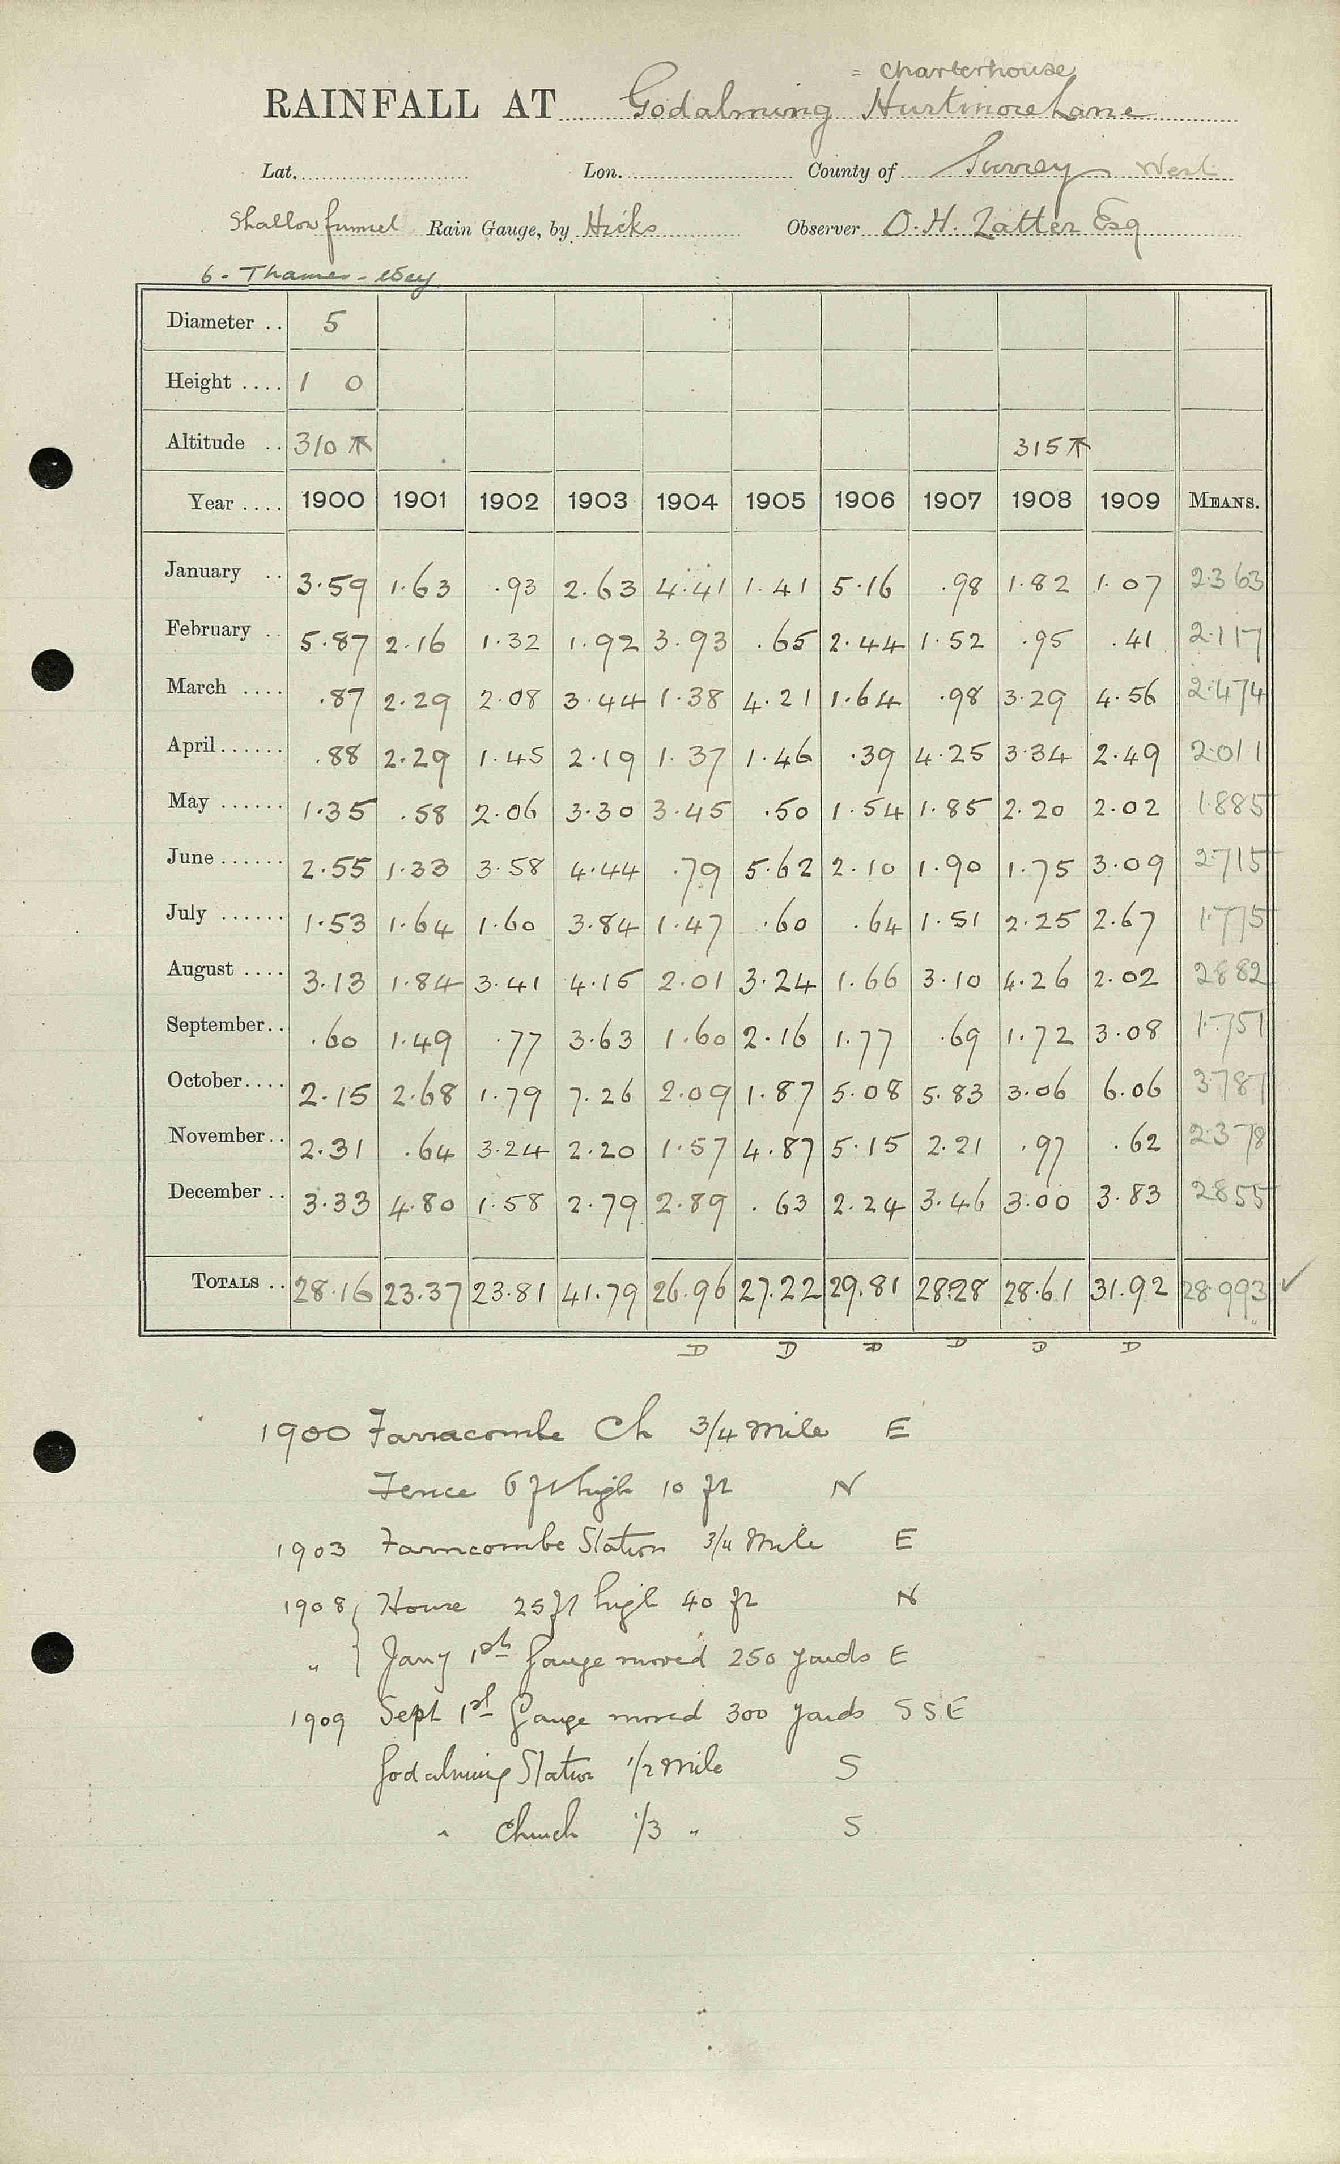 = Charterhouse
RAINFALL AT Godalming Hurtmore Lane
Lat. Lon. County of Surrey West
Shallow funnel Rain Gauge, by Hicks Observer O. H. Latter Esq
6 - Thames - Wey
Diameter .. 5
Height .... 1 0
Altitude .. 310 315
Year .... 1900 1901 1902 1903 1904 1905 1906 1907 1908 1909 MEANS.
January .. 3.59 1.63 .93 2.63 4.41 1.41 5.16 .98 1.82 1.07 2.363
February .. 5.87 2.16 1.32 1.92 3.93 .65 2.44 1.52 .95 .41 2.117
March .... .87 2.29 2.08 3.44 1.38 4.21 1.64 .98 3.29 4.56 2.474
April ...... .88 2.29 1.45 2.19 1.37 1.46 .39 4.25 3.34 2.49 2.011
May ...... 1.35 .58 2.06 3.30 3.45 .50 1.54 1.85 2.20 2.02 1.885
June ...... 2.55 1.33 3.58 4.44 .79 5.62 2.10 1.90 1.75 3.09 2.715
July ...... 1.53 1.64 1.60 3.84 1.47 .60 .64 1.51 2.25 2.67 1.775
August .... 3.13 1.84 3.41 4.15 2.01 3.24 1.66 3.10 4.26 2.02 2.882
September .. .60 1.49 .77 3.63 1.60 2.16 1.77 .69 1.72 3.08 1.751
October .... 2.15 2.68 1.79 7.26 2.09 1.87 5.08 5.83 3.06 6.06 3.787
November .. 2.31 .64 3.24 2.20 1.57 4.87 5.15 2.21 .97 .62 2.378
December .. 3.33 4.80 1.58 2.79 2.89 .63 2.24 3.46 3.00 3.83 2.855
TOTALS .. 28.16 23.37 23.81 41.79 26.96 27.22 29.81 28.28 28.61 31.92 28.993 ✓
D D D D D D
1900 Farnacombe Ch 3/4 Mile E
Fence 6 ft high 10 ft N
1903 Farncombe Station 3/4 Mile E
1908 { House 25 ft high 40 ft N
" } Jany 1st Gauge moved 250 yards E
1909 Sept 1st Gauge moved 300 yards S S E
Godalming Station 1/2 Mile S
" Church 1/3 " S